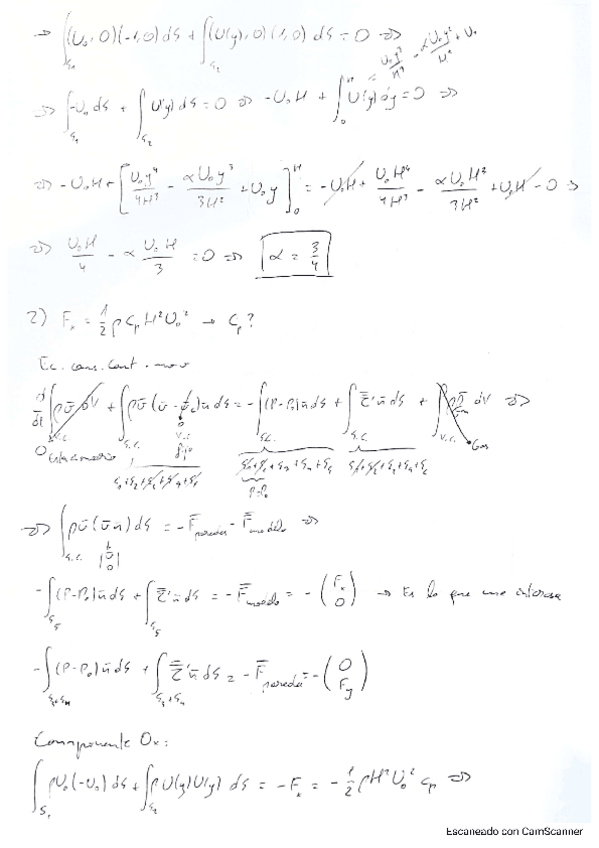 ⇒ ∫_{S1} (U₀, 0)(-1, 0) dS + ∫_{S2} (U(y), 0)(1, 0) dS = 0 ⇒
U₀y³/H³ - αU₀y²/H² + U₀
⇒ ∫_{S1} -U₀ dS + ∫_{S2} U(y) dS = 0 ⇒ -U₀H + ∫₀^H U(y) dy = 0 ⇒
⇒ -U₀H + [U₀y⁴/4H³ - αU₀y³/3H² + U₀y]₀^H = -U₀H + U₀H⁴/4H³ - αU₀H³/3H² + U₀H - 0 ⇒
⇒ U₀H/4 - α U₀H/3 = 0 ⇒ α = 3/4
2) Fx = 1/2 ρ Cp H² U₀² → Cp?
Ec. cons. cant. mov
d/dt ∫_{V.C.} ρū dV + ∫_{S.C.} ρū (ū - ū_c) n̄ dS = -∫_{S.C.} (P-P₀) n̄ dS + ∫_{S.C.} τ̿' n̄ dS + ∫_{V.C.} ρf̄m dV ⇒
0 Estacionario
0 V.C. fijo
Gas
P=P₀
⇒ ∫_{S.C.} ρū (ū n̄) dS = -F̄pared - F̄modelo ⇒
-∫_{S5} (P-P₀) n̄ dS + ∫_{S5} τ̿' n̄ dS = -F̄modelo = -(Fx 0) → Es lo que me interesa
-∫ (P-P₀) n̄ dS + ∫ τ̿' n̄ dS = -F̄pareda = -(0 Fy)
Componente Ox:
∫_{S1} ρU₀(-U₀) dS + ∫_{S2} ρU(y)U(y) dS = -Fx = -1/2 ρH²U₀² Cp ⇒
Escaneado con CamScanner